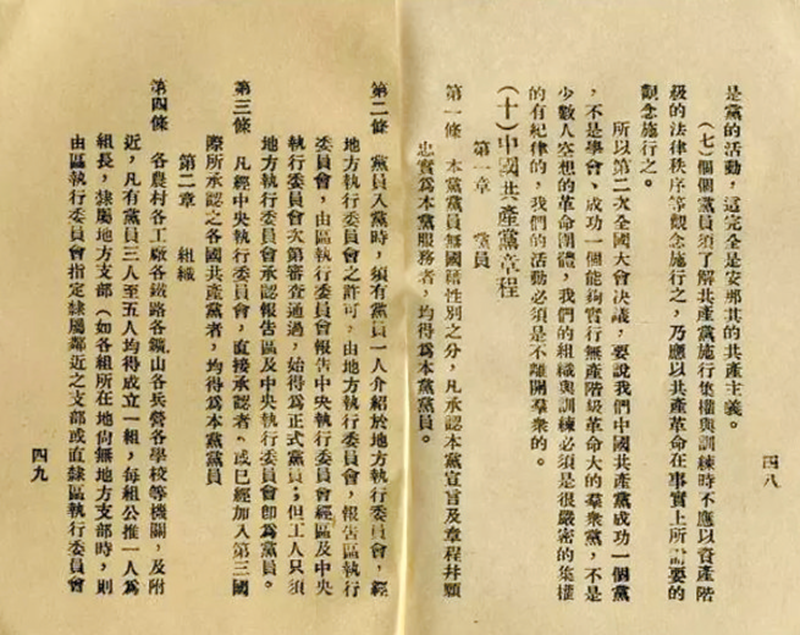 四八
是黨的活動，這完全是安那其的共產主義。
（七）個個黨員須了解共產黨施行集權與訓練時不應以資產階
級的法律秩序等觀念施行之，乃應以共產革命在事實上所需要的
觀念施行之。
所以第二次全國大會決議，要說我們中國共產黨成功一個黨
，不是學會、成功一個能夠實行無產階級革命大的羣衆黨，不是
少數人空想的革命團體，我們的組織與訓練必須是很嚴密的集權
的有紀律的，我們的活動必須是不離開羣衆的。
（十）中國共產黨章程
第一章　黨員
第一條　本黨黨員無國籍性別之分，凡承認本黨宣言及章程幷願
忠實爲本黨服務者，均得爲本黨黨員。
第二條　黨員入黨時，須有黨員一人介紹於地方執行委員會，經
地方執行委員會之許可，由地方執行委員會，報告區執行
委員會，由區執行委員會報告中央執行委員會經區及中央
執行委員會次第審查通過，始得爲正式黨員；但工人只須
地方執行委員會承認報告區及中央執行委員會卽爲黨員。
第三條　凡經中央執行委員會，直接承認者、或已經加入第三國
際所承認之各國共產黨者，均得爲本黨黨員
第二章　組織
第四條　各農村各工廠各鐵路各鑛山各兵營各學校等機關，及附
近，凡有黨員三人至五人均得成立一組，每組公推一人爲
組長，隸屬地方支部（如各組所在地尙無地方支部時，則
由區執行委員會指定隸屬鄰近之支部或直隸區執行委員會
四九